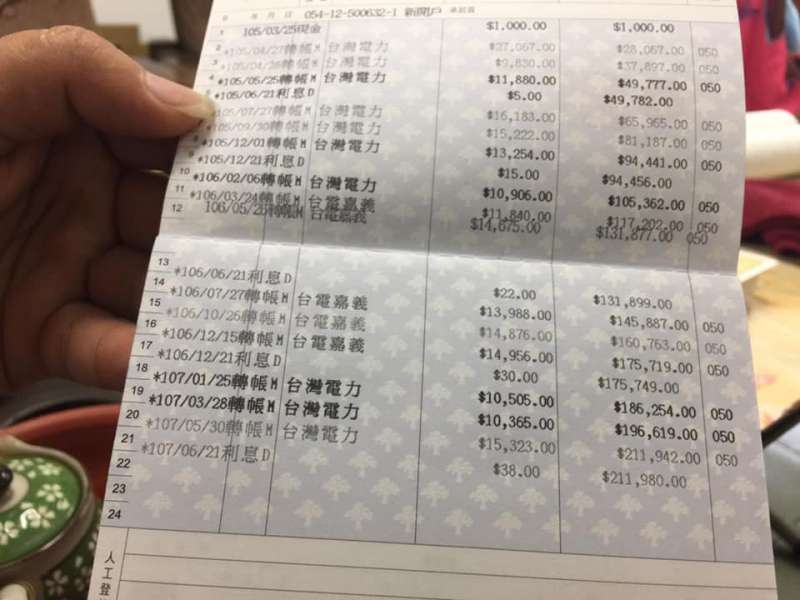 年 月 日 054-12-500632-1 新開戶 承前頁
1 105/03/25現金 $1,000.00 $1,000.00
2 *105/04/27轉帳M 台灣電力 $27,067.00 $28,067.00 050
3 *105/04/28轉帳M 台灣電力 $9,830.00 $37,897.00 050
4 *105/05/25轉帳M 台灣電力 $11,880.00 $49,777.00 050
*105/06/21利息D $5.00 $49,782.00
*105/07/27轉帳M 台灣電力 $16,183.00 $65,965.00 050
*105/09/30轉帳M 台灣電力 $15,222.00 $81,187.00 050
*105/12/01轉帳M 台灣電力 $13,254.00 $94,441.00 050
9 *105/12/21利息D $15.00 $94,456.00
10 *106/02/06轉帳M 台灣電力 $10,906.00 $105,362.00 050
11 *106/03/24轉帳M 台電嘉義 $11,840.00 $117,202.00 050
12 106/05/26轉帳M 台電嘉義 $14,675.00 $131,877.00 050
13 *106/06/21利息D $22.00 $131,899.00
14 *106/07/27轉帳M 台電嘉義 $13,988.00 $145,887.00 050
15 *106/10/26轉帳M 台電嘉義 $14,876.00 $160,763.00 050
16 *106/12/15轉帳M 台電嘉義 $14,956.00 $175,719.00 050
17 *106/12/21利息D $30.00 $175,749.00
18 *107/01/25轉帳M 台灣電力 $10,505.00 $186,254.00 050
19 *107/03/28轉帳M 台灣電力 $10,365.00 $196,619.00 050
20 *107/05/30轉帳M 台灣電力 $15,323.00 $211,942.00 050
21 *107/06/21利息D $38.00 $211,980.00
22
23
24
人工登